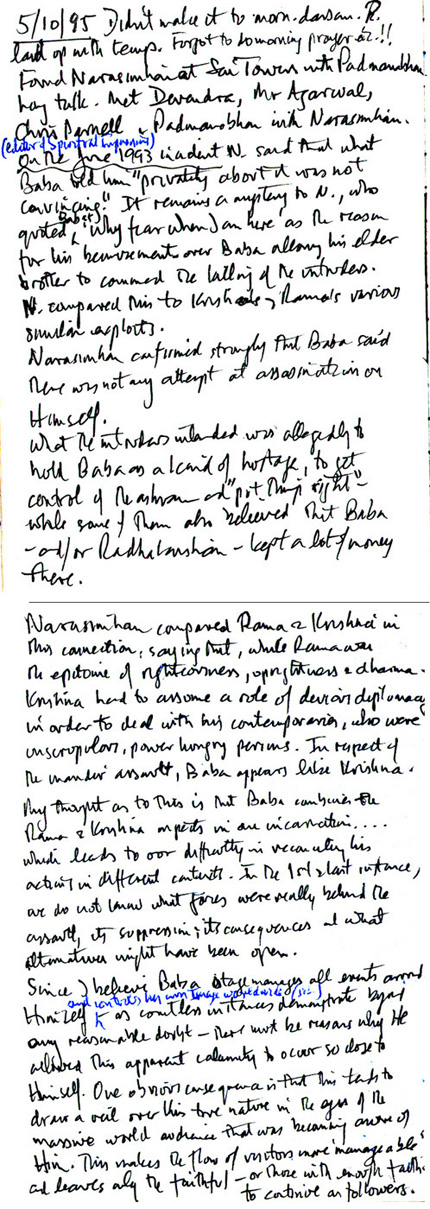 5/10/95 Didn't make it to morn. darsan. R.
laid up with temp. Forgot to do morning prayer etc!!
Found Narasimhan at Sai Towers with Padmanabhan
long talk. Met Devendra, Mr Agarwal,
Chris Parnell & Padmanabhan with Narasimhan.
(editor of Spiritual Impressions)
On the June 1993 incident N. said that what
Baba told him "privately about it was not
convincing." It remains a mystery to N., who
quoted Baba's "Why fear when I am here as the reason
for his bemusement over Baba allowing his elder
brother to command the killing of the intruders.
N. compared this to Krishna's & Rama's various
similar exploits.
Narasimhan confirmed strongly that Baba said
there was not any attempt at assassination on
Himself.
What the intruders intended was allegedly to
hold Baba as a kind of hostage, to get
control of the ashram and "put things right" -
while some of them also believed that Baba
- and/or Radhakrishnan - kept a lot of money
there.
Narasimhan compared Rama & Krishna in
this connection, saying that, while Rama was
the epitome of righteousness, uprightness & dharma.
Krishna had to assume a role of devious diplomacy
in order to deal with his contemporaries, who were
unscrupulous, power hungry persons. In respect of
the mandir assault, Baba appears like Krishna.
My thought as to this is that Baba combines the
Rama & Krishna aspects in one incarnation....
which leads to our difficulty in reconciling his
actions in different contexts. In the 1st & last instance,
we do not know what forces were really behind the
assault, its suppression, its consequences and what
alternatives might have been open.
Since I believe Baba stage manages all events around
and controls his own image worldwide (sic)
Himself as countless instances demonstrate beyond
any reasonable doubt - there must be reasons why He
allowed this apparent calamity to occur so close to
Himself. One obvious consequence is that this tends to
draw a veil over his true nature in the eyes of the
massive world audience that was becoming aware of
Him. This makes the flow of visitors more 'manageable'
and leaves only the faithful - or those with enough faith
to continue as followers.